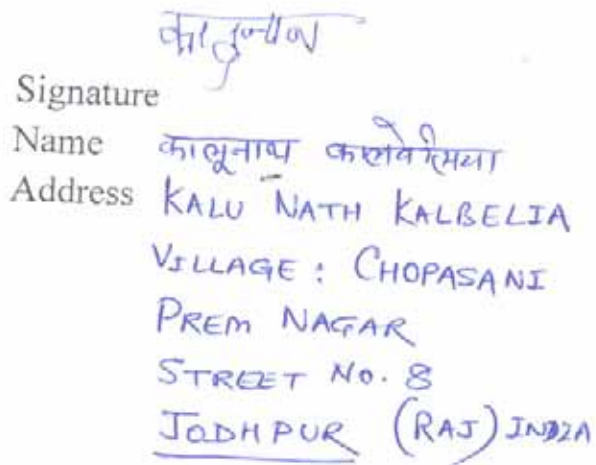 Signature
Name कालूनाथ कालबेलिया
Address KALU NATH KALBELIA
VILLAGE : CHOPASANI
PREM NAGAR
STREET NO. 8
JODHPUR (RAJ) INDIA